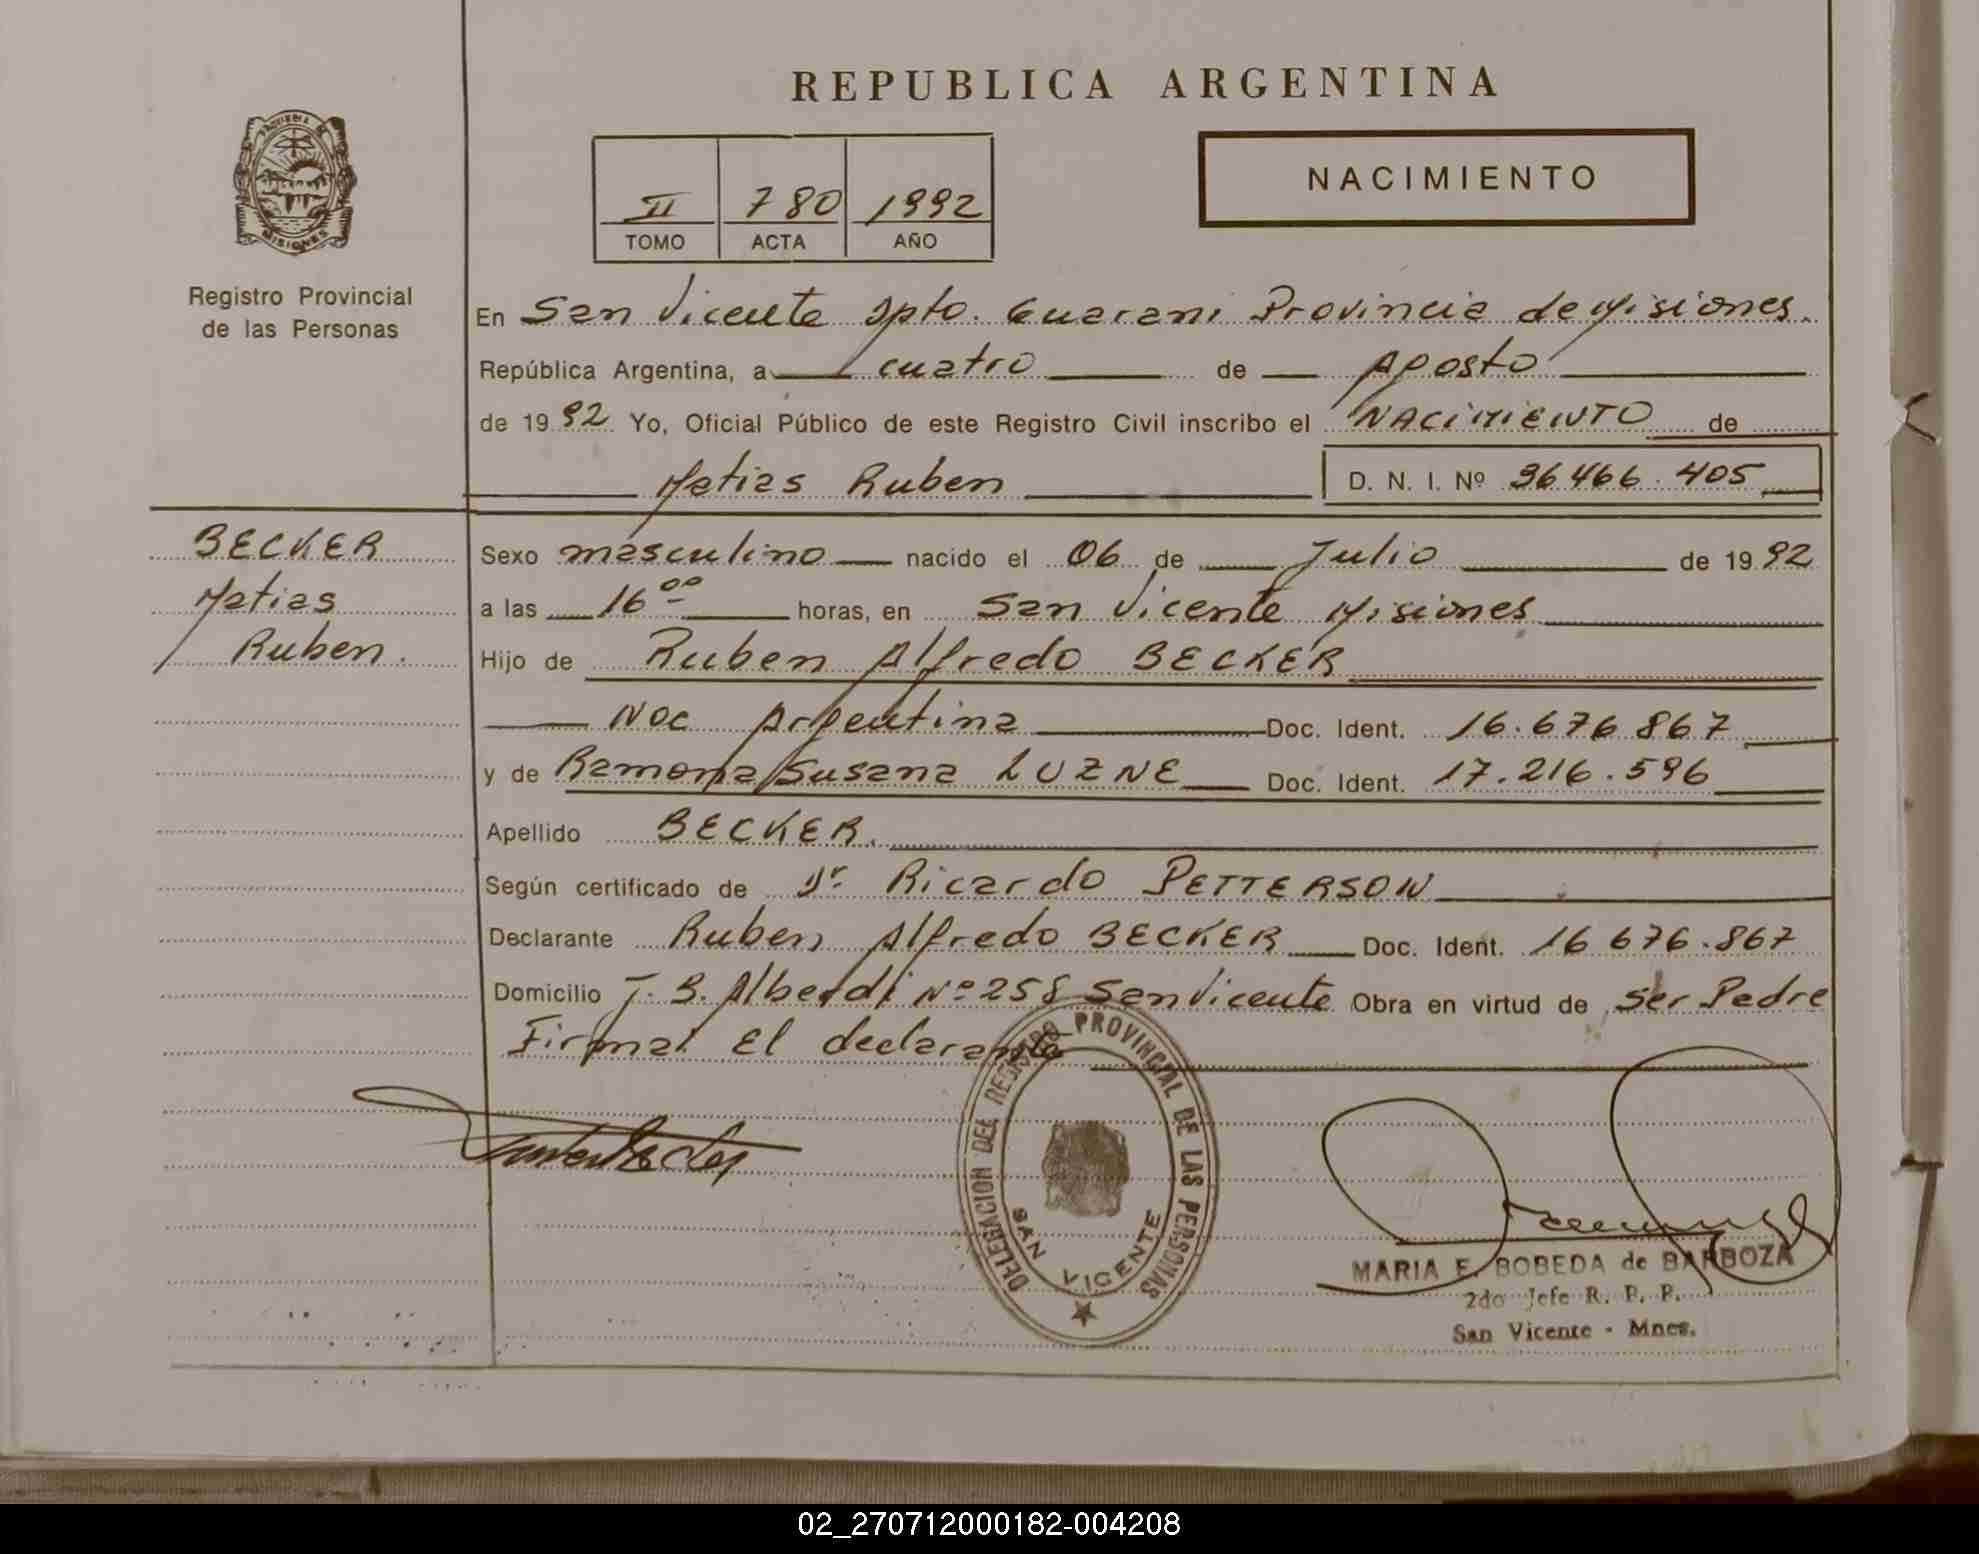 REPUBLICA ARGENTINA
PROVINCIA DE
MISIONES
Registro Provincial
de las Personas
II 780 1992
TOMO ACTA AÑO
NACIMIENTO
En San Vicente Dpto. Guarani Provincia de Misiones.
República Argentina, a cuatro de Agosto
de 1992 Yo, Oficial Público de este Registro Civil inscribo el NACIMIENTO de
Matias Ruben D. N. I. Nº 36466.405
BECKER
Matias
Ruben.
Sexo masculino nacido el 06 de Julio de 1992
a las 16ºº horas, en San Vicente Misiones
Hijo de Ruben Alfredo BECKER
Nac Argentina Doc. Ident. 16.676.867
y de Ramona Susana LUZNE Doc. Ident. 17.216.596
Apellido BECKER.
Según certificado de Dr. Ricardo PETTERSON
Declarante Ruben Alfredo BECKER Doc. Ident. 16 676.867
Domicilio J. B. Alberdi Nº 258 San Vicente Obra en virtud de Ser Padre
Firma: El declarante
DELEGACION DEL REGISTRO PROVINCIAL DE LAS PERSONAS
SAN VICENTE
MARIA E. BOBEDA de BARBOZA
2do Jefe R. P. P.
San Vicente - Mnes.
02_270712000182-004208